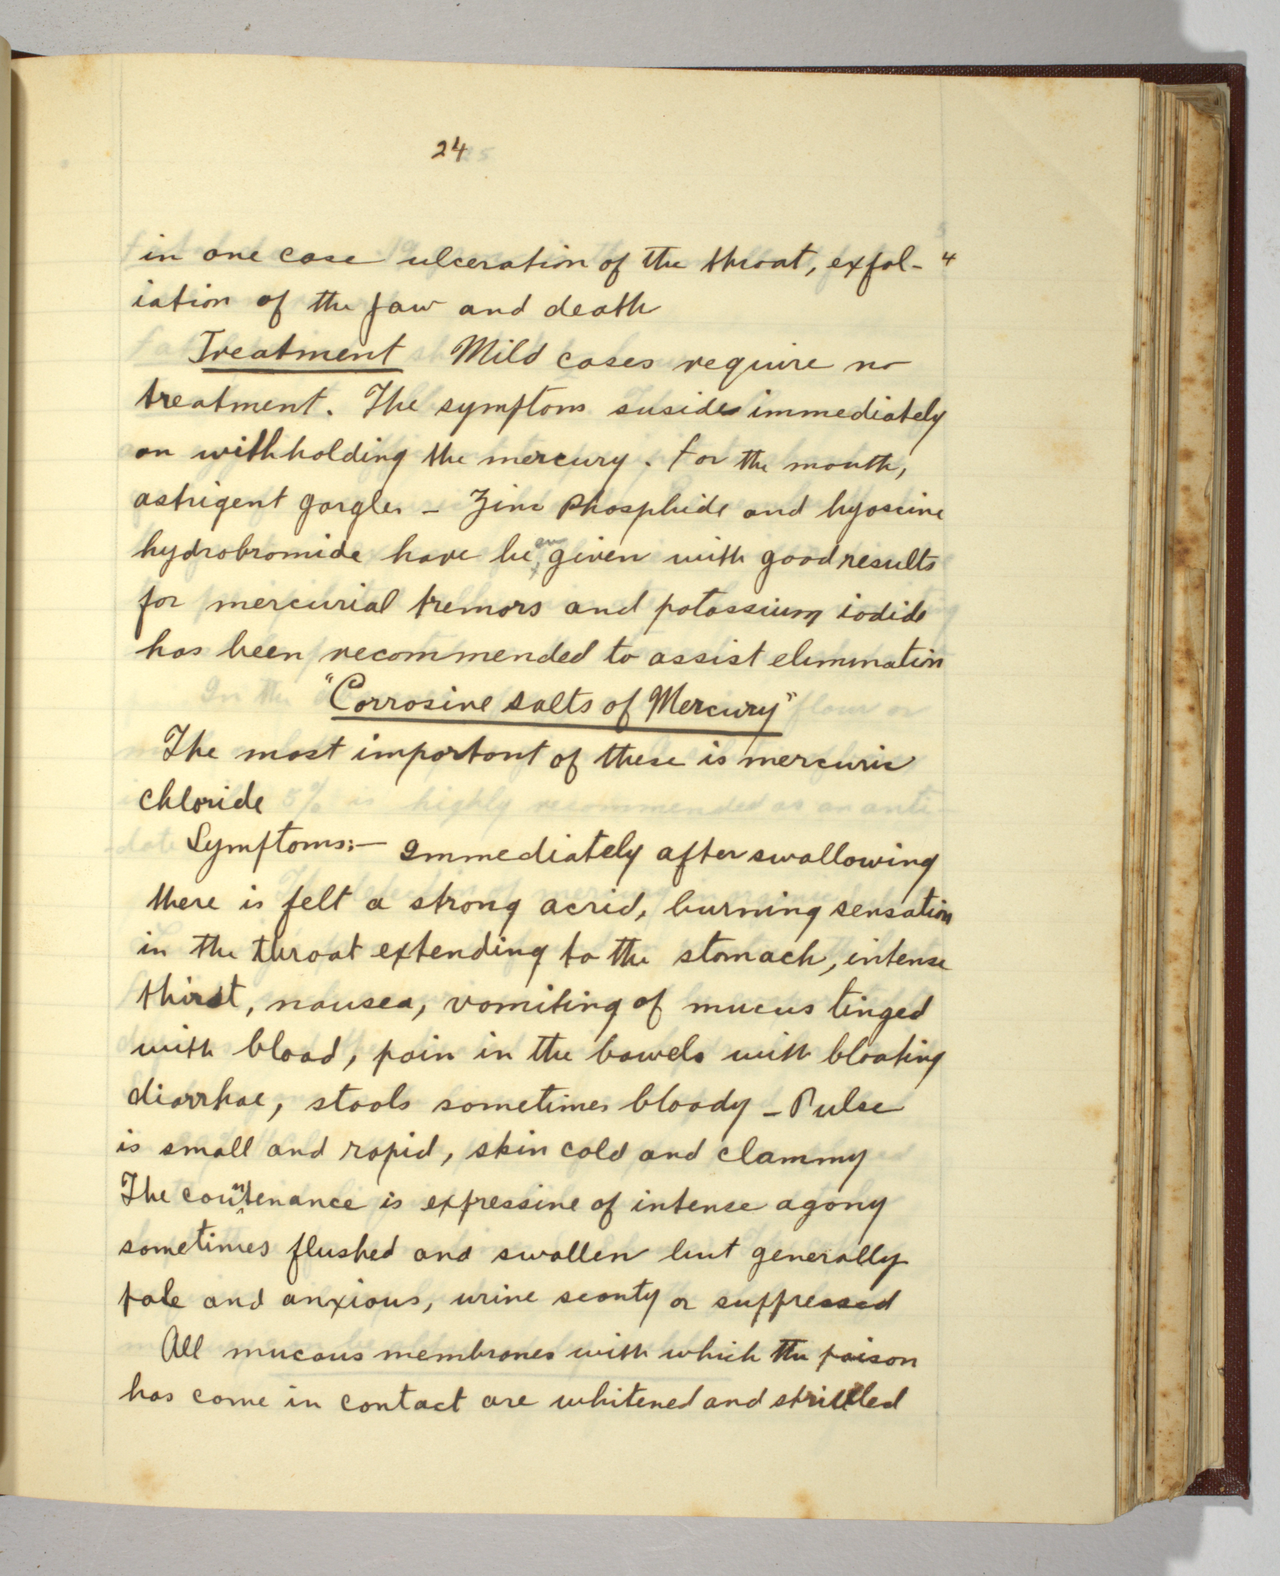 24
in one case ulceration of the throat, exfol- 4
iation of the jaw and death
Treatment Mild cases require no
treatment. The symptoms susides immediately
on withholding the mercury. For the mouth,
astrigent gargles - Zinc Phosphide and hyoscine
hydrobromide have been given with good results
for mercurial tremors and potassium iodide
has been recommended to assist elimination
"Corrosive salts of Mercury"
The most important of these is mercuric
chloride
Symptoms:- Immediately after swallowing
there is felt a strong acrid, burning sensation
in the throat extending to the stomach, intense
thirst, nausea, vomiting of mucus tinged
with blood, pain in the bowels with bloating
diarrhae, stools sometimes bloody - Pulse
is small and rapid, skin cold and clammy
The countenance is expressive of intense agony
sometimes flushed and swollen but generally
pale and anxious, urine scanty or suppressed
All mucous membranes with which the poison
has come in contact are whitened and